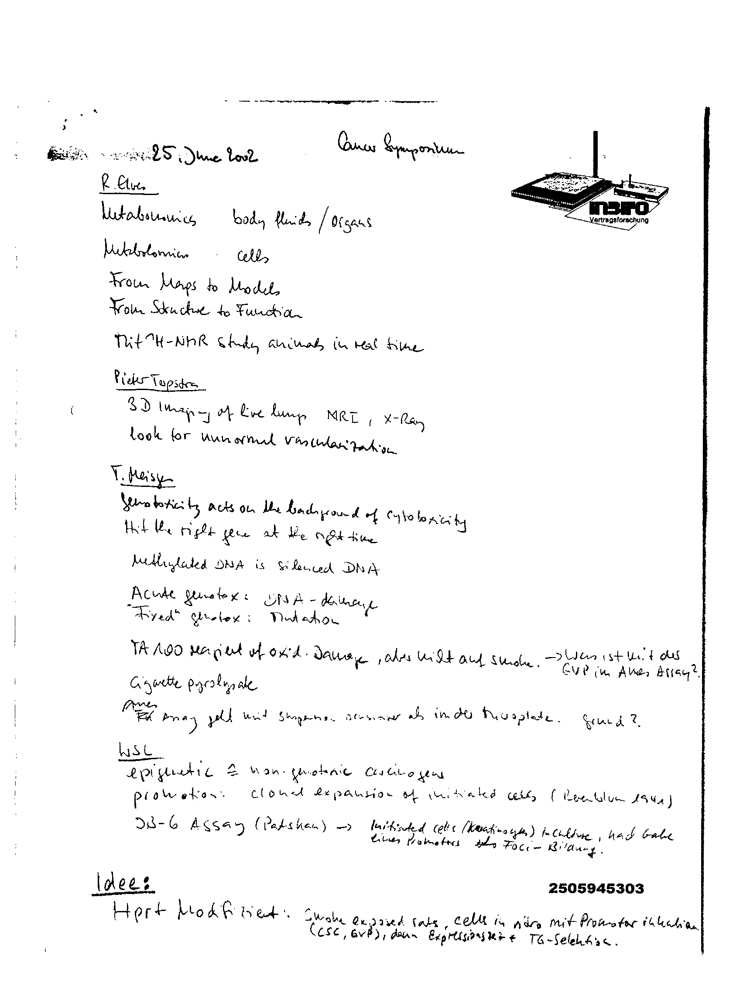 25. June 2002
Cancer Symposium
INBIFO
Vertragsforschung
R. Elves
Metabonomics body fluids / organs
Metabolomics cells
From Maps to Models
From Structure to Function
Mit ¹H-NMR study animals in real time
Pieter Topstra
3D Imaging of live lungs MRI, X-Ray
look for unnormal vascularization
T. Meisgen
Genotoxicity acts on the background of cytotoxicity
Hit the right gene at the right time
Methylated DNA is silenced DNA
Acute genotox: DNA-damage
"Fixed" genotox: Mutation
TA 100 reagiert auf oxid. Damage, aber nicht auf smoke. → Was ist mit der
GVP im Ames Assay?
Cigarette pyrolysate
Ames
Assay geht mit suspension als in der Microplate. Grund?
WSL
epigenetic ≙ non-genotoxic carcinogens
promotion: clonal expansion of initiated cells ( 1941)
JB-6 Assay (Patskan) → Initiated cells (Keratinocytes) in culture, nach Gabe
eines Promotors Foci-Bildung.
Idee:
2505945303
Hprt Modifiziert: Smoke exposed rats, cells in vitro mit Promotor inkubation
(CSC, GVP), dann Expressionszeit + TG-Selektion.